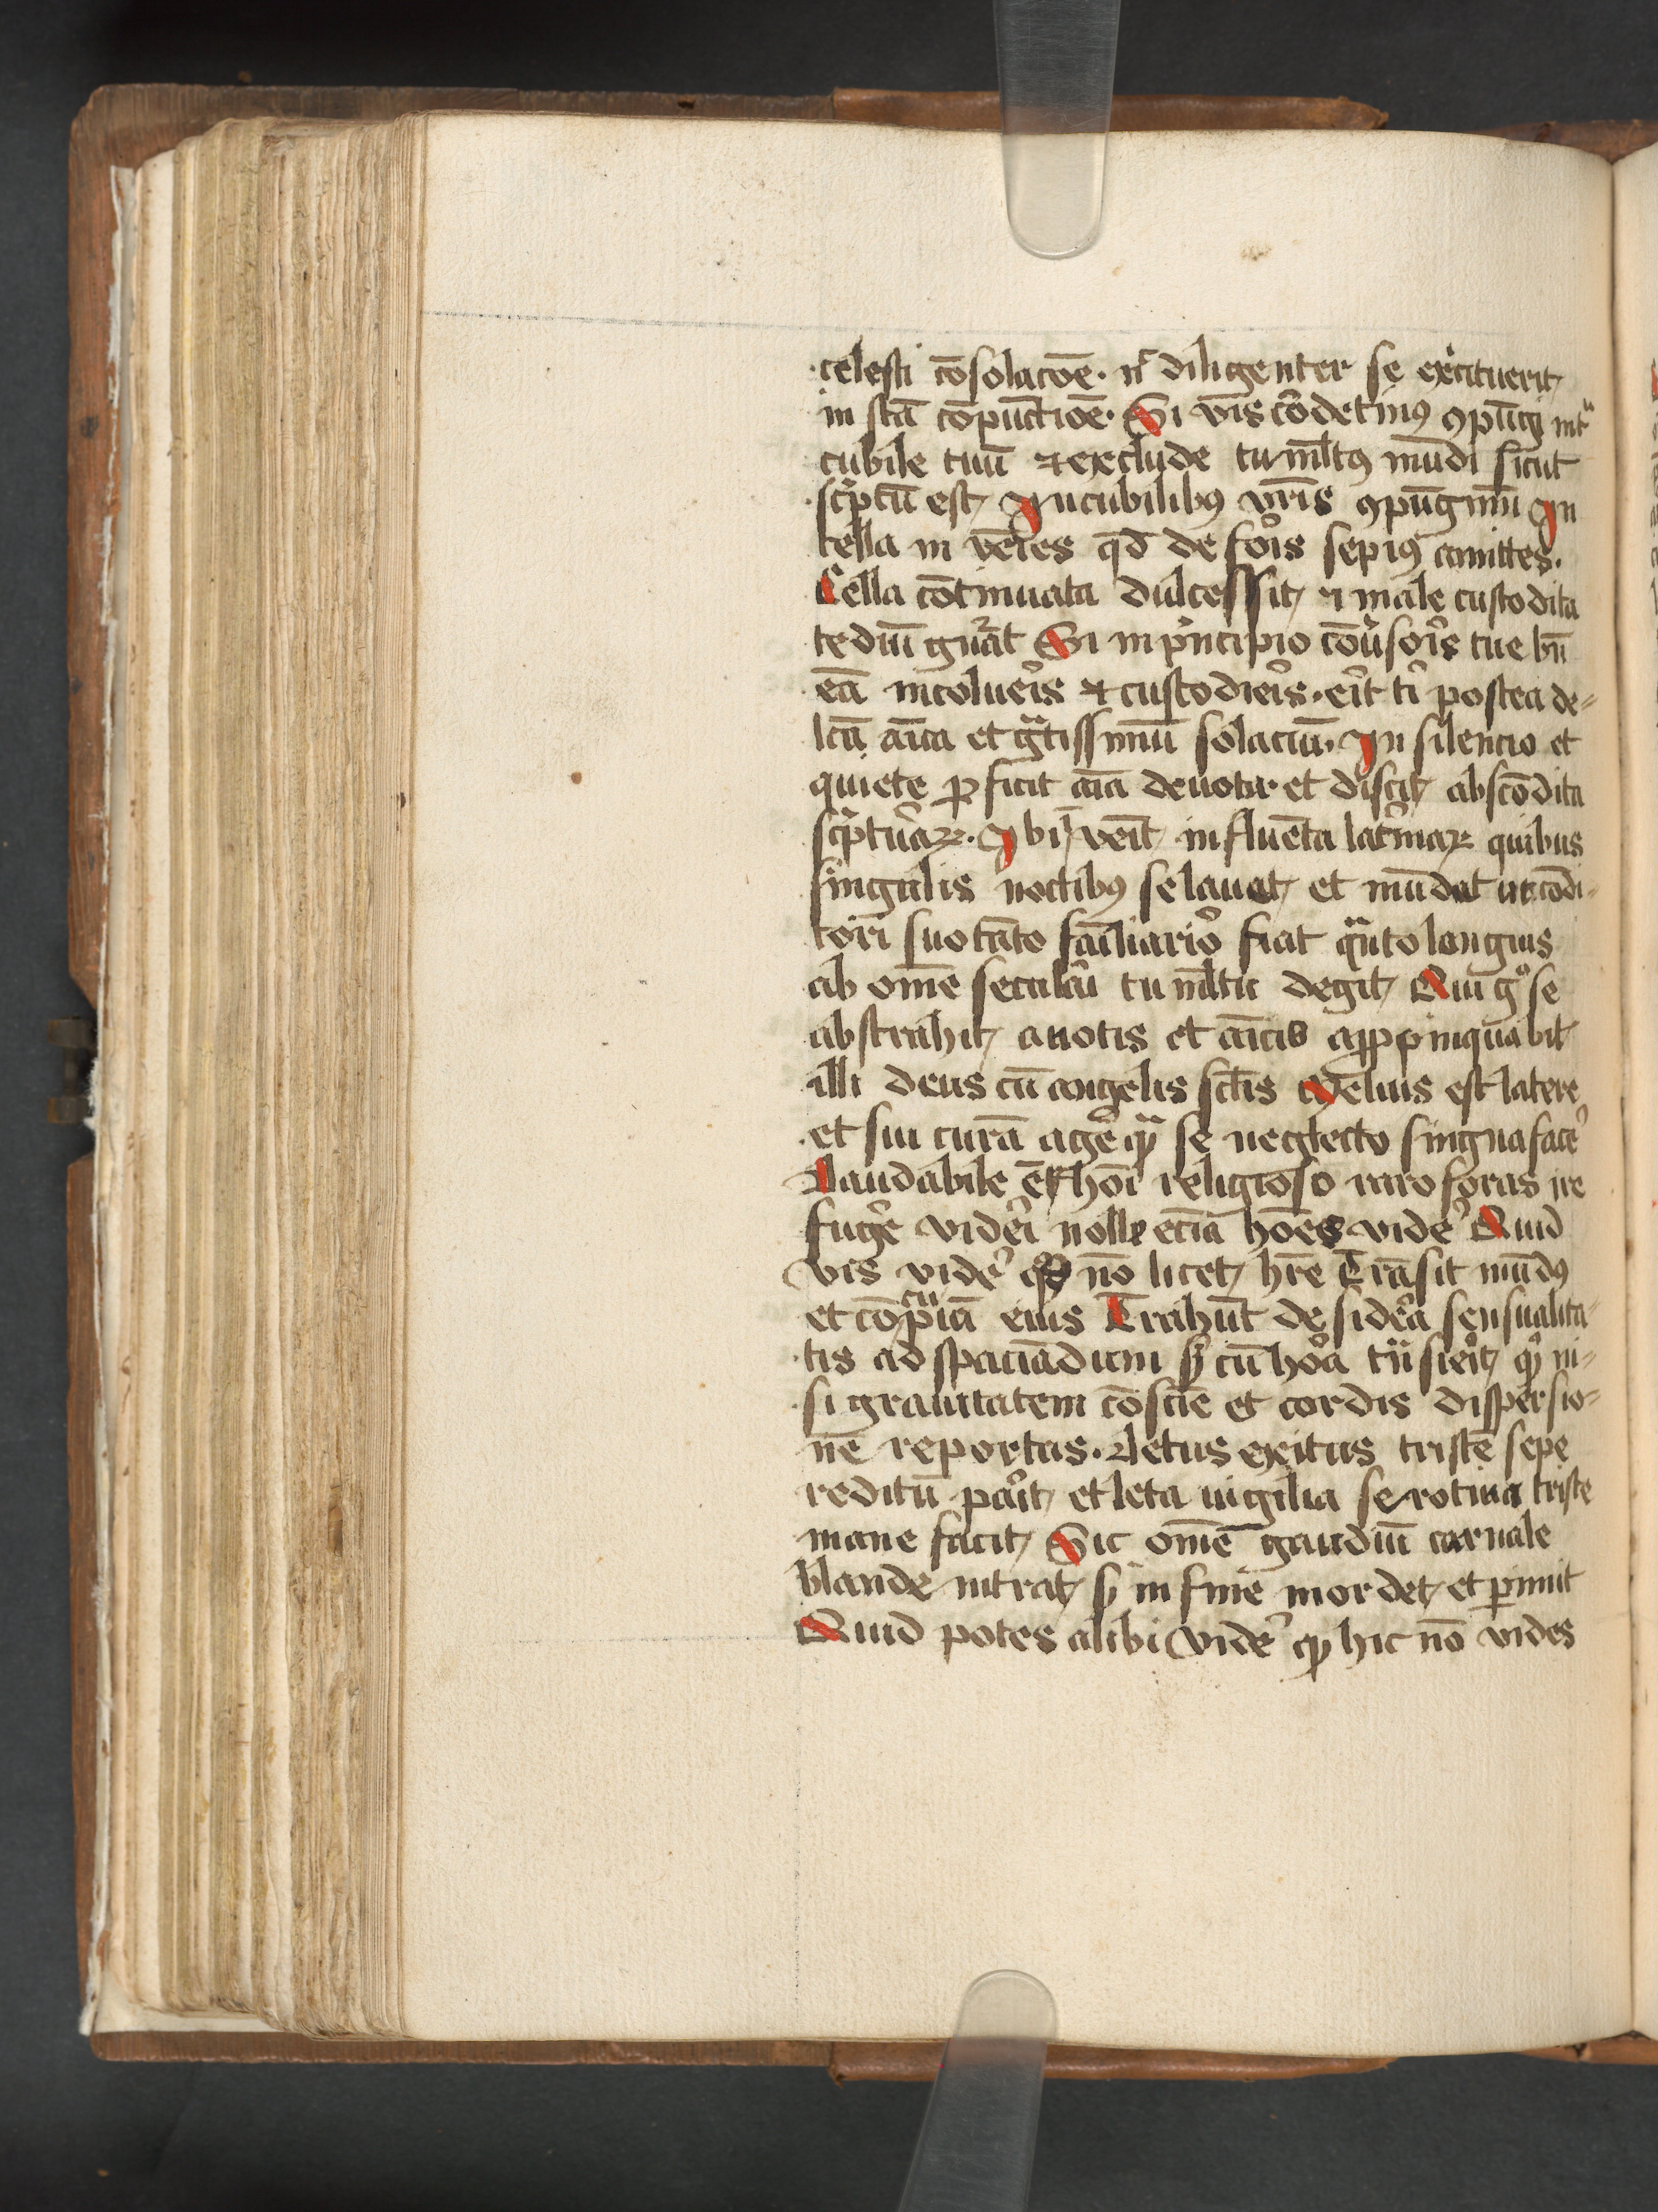 celesti cōsolacōe. nͥ diligenter se ex̾cituerit
in scā cōpunctiōe. Si vīs cordetinꝰ ꝯpūgi intᵃ
cubile tuū et exclude tumltꝰ mūdi sicut
scͥptū est In cubilibꝰ vr̄is ꝯpūgimī In
cella inven̄ies qd̄ de foris sepiꝰ amittes.
Cella cōtinuata dulcessit et male custodita
tediū gn̾at Si in pͥncipio cōu̾sōis tue bn̄
eā incolueris et custodieris. erit tͥ postea de-
lcā aīca et gᵃtissimū solaciū. In silencio et
quiete ꝓficit aīa deuota. et discit abscōdita
scͥpturaꝝ. Ibi īven̄it influēta lacͥmaꝝ quibus
singulis noctibꝰ se lauat et mūdat ut cōdi-
tori suo tāto fam̄iliarior fiat qᵃnto longius
ab om̄e seculari tumltu degit Qui gͦ se
abstrahit a notis et aīcis apꝓpinquabit
illi deus cū angelis sctīs Melius est latere
et sui curā age̾ qᵃ se neglecto singna face̾
Laudabile ē hoī religioso raro foras ire
fuge̾ videri nolle eciā hoēs vide̾ Quid
vis vide̾ qd̄ nō licet hr̄e Trāsit mūdꝰ
et cōcupīa eius Trahūt desideria sensualita-
tis ad spaciādum sꝫ cū hora trāsierit qͥ ni-
si grauitatem cōscīe et cordis dispersio-
nē reportas. Letus exitus tristē sepe
reditū parit et leta uigilia serotina triste
mane facit Sic om̄e gaudiū carnale
blande intrat sꝫ in fine mordet et ꝑimit
Quid potes alibi vide̾ qꝫ hic nō vides